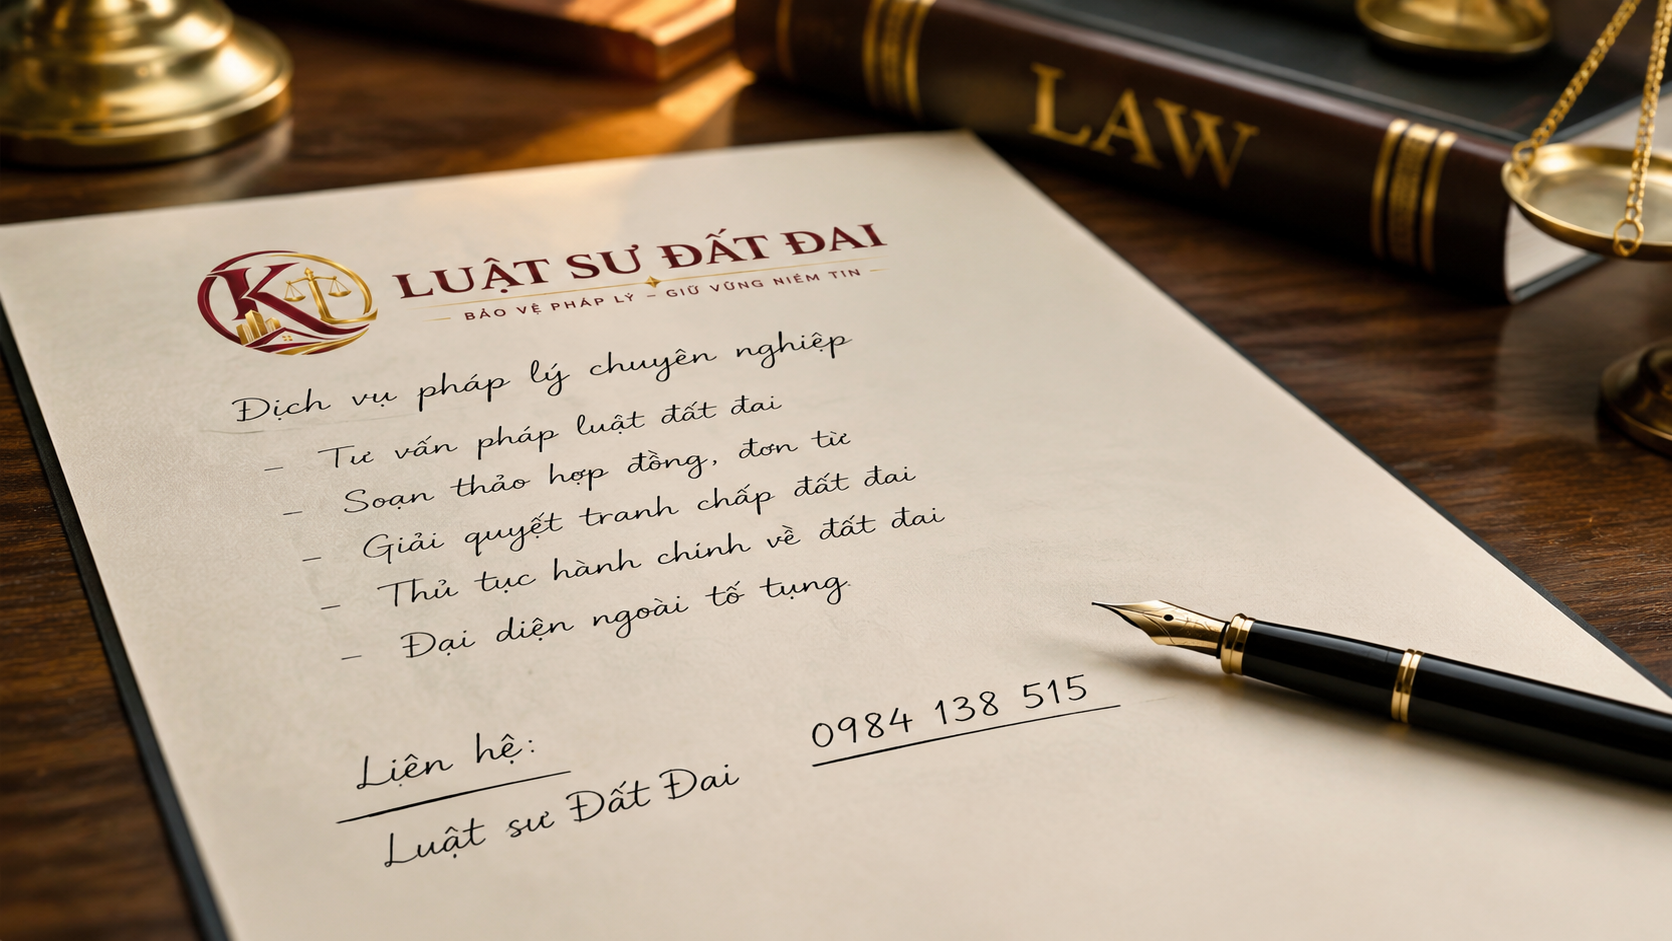 LAW
K
LUẬT SƯ ĐẤT ĐAI
BẢO VỆ PHÁP LÝ – GIỮ VỮNG NIỀM TIN
Dịch vụ pháp lý chuyên nghiệp
- Tư vấn pháp luật đất đai
- Soạn thảo hợp đồng, đơn từ
- Giải quyết tranh chấp đất đai
- Thủ tục hành chính về đất đai
- Đại diện ngoài tố tụng.
Liên hệ:
0984 138 515
Luật sư Đất Đai